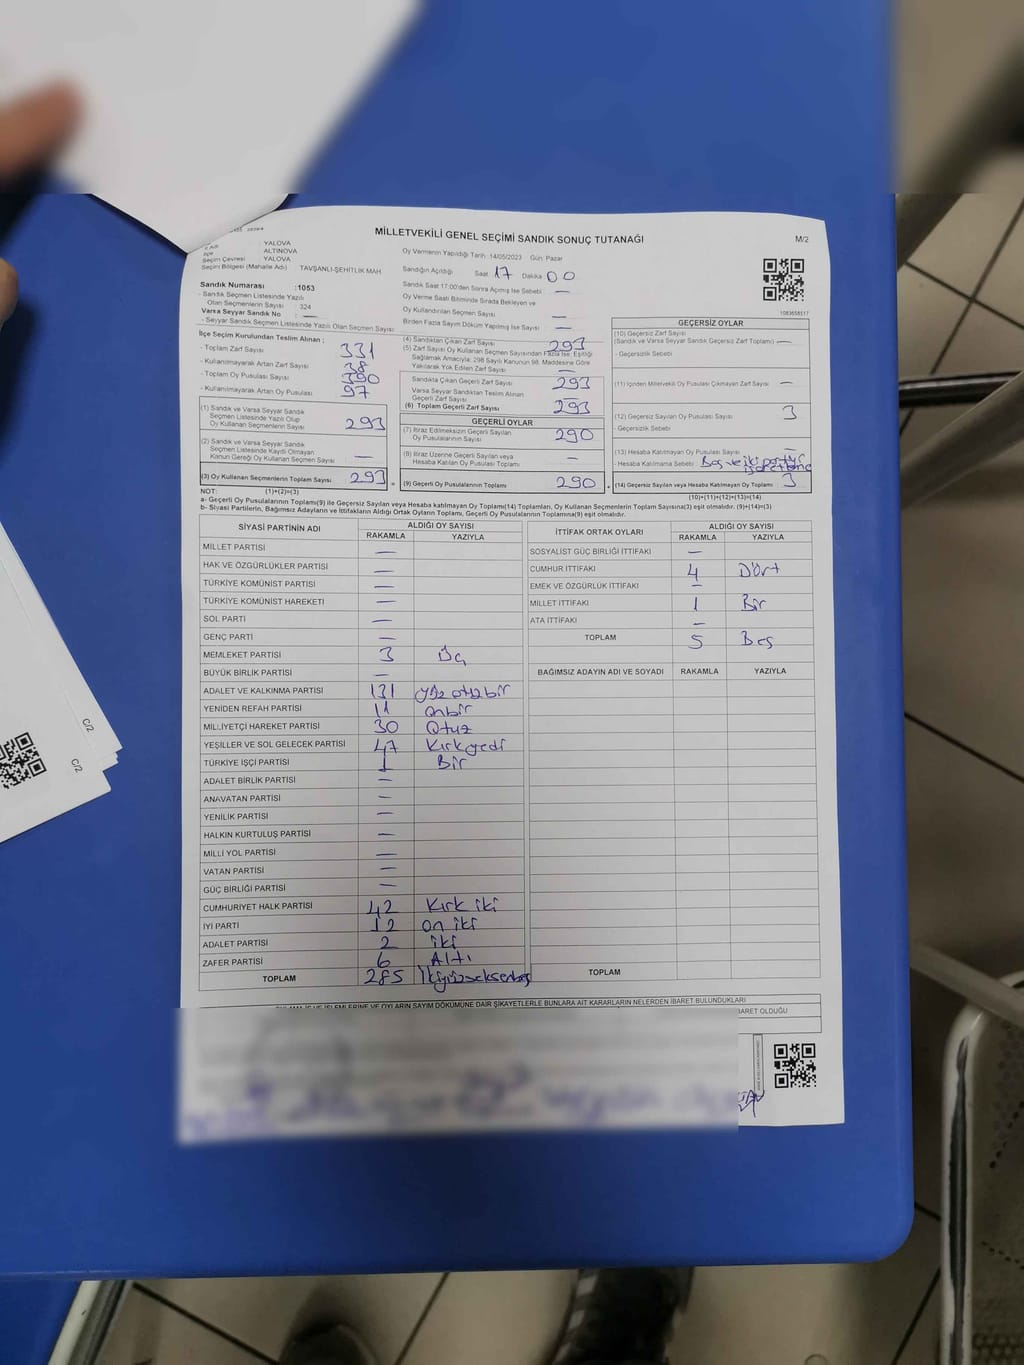 MİLLETVEKİLİ GENEL SEÇİMİ SANDIK SONUÇ TUTANAĞI
M/2
: YALOVA
: ALTINOVA
Seçim Çevresi : YALOVA
Seçim Bölgesi (Mahalle Adı) : TAVŞANLI-ŞEHİTLİK MAH
Oy Vermenin Yapıldığı Tarih :14/05/2023 Gün: Pazar
Sandığın Açıldığı Saat 17 Dakika 00
Sandık Numarası :1053
- Sandık Seçmen Listesinde Yazılı
Olan Seçmenlerin Sayısı : 324
Varsa Seyyar Sandık No : —
- Seyyar Sandık Seçmen Listesinde Yazılı Olan Seçmen Sayısı
Sandık Saat 17:00'den Sonra Açılmış İse Sebebi : —
Oy Verme Saati Bitiminde Sırada Bekleyen ve
Oy Kullandırılan Seçmen Sayısı : —
Birden Fazla Sayım Döküm Yapılmış İse Sayısı : —
1083658517
İlçe Seçim Kurulundan Teslim Alınan ;
- Toplam Zarf Sayısı : 331
- Kullanılmayarak Artan Zarf Sayısı : 38
- Toplam Oy Pusulası Sayısı : 390
- Kullanılmayarak Artan Oy Pusulası : 97
(1) Sandık ve Varsa Seyyar Sandık
Seçmen Listesinde Yazılı Olup
Oy Kullanan Seçmenlerin Sayısı : 293
(2) Sandık ve Varsa Seyyar Sandık
Seçmen Listesinde Kaydı Olmayan
Kanun Gereği Oy Kullanan Seçmen Sayısı : —
(3) Oy Kullanan Seçmenlerin Toplam Sayısı : 293
(4) Sandıktan Çıkan Zarf Sayısı : 293
(5) Zarf Sayısı Oy Kullanan Seçmen Sayısından Fazla İse; Eşitliği
Sağlamak Amacıyla; 298 Sayılı Kanunun 98. Maddesine Göre
Yakılarak Yok Edilen Zarf Sayısı : —
Sandıkta Çıkan Geçerli Zarf Sayısı : 293
Varsa Seyyar Sandıktan Teslim Alınan
Geçerli Zarf Sayısı : —
(6) Toplam Geçerli Zarf Sayısı : 293
GEÇERLİ OYLAR
(7) İtiraz Edilmeksizin Geçerli Sayılan
Oy Pusulalarının Sayısı : 290
(8) İtiraz Üzerine Geçerli Sayılan veya
Hesaba Katılan Oy Pusulası Toplamı : —
(9) Geçerli Oy Pusulalarının Toplamı : 290
GEÇERSİZ OYLAR
(10) Geçersiz Zarf Sayısı
(Sandık ve Varsa Seyyar Sandık Geçersiz Zarf Toplamı) : —
- Geçersizlik Sebebi :
(11) İçinden Milletvekili Oy Pusulası Çıkmayan Zarf Sayısı : —
(12) Geçersiz Sayılan Oy Pusulası Sayısı : 3
- Geçersizlik Sebebi :
(13) Hesaba Katılmayan Oy Pusulası Sayısı : —
- Hesaba Katılmama Sebebi : Boş ve iki partiye
(14) Geçersiz Sayılan veya Hesaba Katılmayan Oy Toplamı : 3
(10)+(11)+(12)+(13)=(14)
NOT: (1)+(2)=(3)
a- Geçerli Oy Pusulalarının Toplamı(9) ile Geçersiz Sayılan veya Hesaba katılmayan Oy Toplamı(14) Toplamları, Oy Kullanan Seçmenlerin Toplam Sayısına(3) eşit olmalıdır. (9)+(14)=(3)
b- Siyasi Partilerin, Bağımsız Adayların ve İttifakların Aldığı Ortak Oyların Toplamı, Geçerli Oy Pusulalarının Toplamına(9) eşit olmalıdır.
SİYASİ PARTİNİN ADI ALDIĞI OY SAYISI
RAKAMLA YAZIYLA
MİLLET PARTİSİ —
HAK VE ÖZGÜRLÜKLER PARTİSİ —
TÜRKİYE KOMÜNİST PARTİSİ —
TÜRKİYE KOMÜNİST HAREKETİ —
SOL PARTİ —
GENÇ PARTİ —
MEMLEKET PARTİSİ 3 Üç
BÜYÜK BİRLİK PARTİSİ —
ADALET VE KALKINMA PARTİSİ 131 yüz otuz bir
YENİDEN REFAH PARTİSİ 11 onbir
MİLLİYETÇİ HAREKET PARTİSİ 30 Otuz
YEŞİLLER VE SOL GELECEK PARTİSİ 47 Kırkyedi
TÜRKİYE İŞÇİ PARTİSİ 1 Bir
ADALET BİRLİK PARTİSİ —
ANAVATAN PARTİSİ —
YENİLİK PARTİSİ —
HALKIN KURTULUŞ PARTİSİ —
MİLLİ YOL PARTİSİ —
VATAN PARTİSİ —
GÜÇ BİRLİĞİ PARTİSİ —
CUMHURİYET HALK PARTİSİ 42 Kırk iki
İYİ PARTİ 12 on iki
ADALET PARTİSİ 2 iki
ZAFER PARTİSİ 6 Altı
TOPLAM 285 İkiyüzseksenbeş
İTTİFAK ORTAK OYLARI ALDIĞI OY SAYISI
RAKAMLA YAZIYLA
SOSYALİST GÜÇ BİRLİĞİ İTTİFAKI —
CUMHUR İTTİFAKI 4 Dört
EMEK VE ÖZGÜRLÜK İTTİFAKI —
MİLLET İTTİFAKI 1 Bir
ATA İTTİFAKI —
TOPLAM 5 Beş
BAĞIMSIZ ADAYIN ADI VE SOYADI RAKAMLA YAZIYLA
TOPLAM
İŞLEMLERİNE VE OYLARIN SAYIM DÖKÜMÜNE DAİR ŞİKAYETLERLE BUNLARA AİT KARARLARIN NELERDEN İBARET BULUNDUKLARI
İBARET OLDUĞU
C/2
C/2